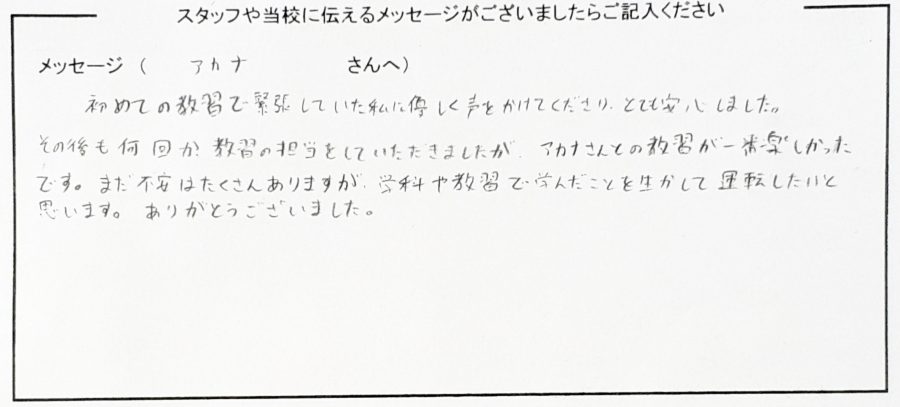 スタッフや当校に伝えるメッセージがございましたらご記入ください
メッセージ ( アカナ さんへ)
初めての教習で緊張していた私に優しく声をかけてくださり、とても安心しました。
その後も何回か教習の担当をしていただきましたが、アカナさんとの教習が一番楽しかった
です。まだ不安はたくさんありますが、学科や教習で学んだことを生かして運転したいと
思います。ありがとうございました。